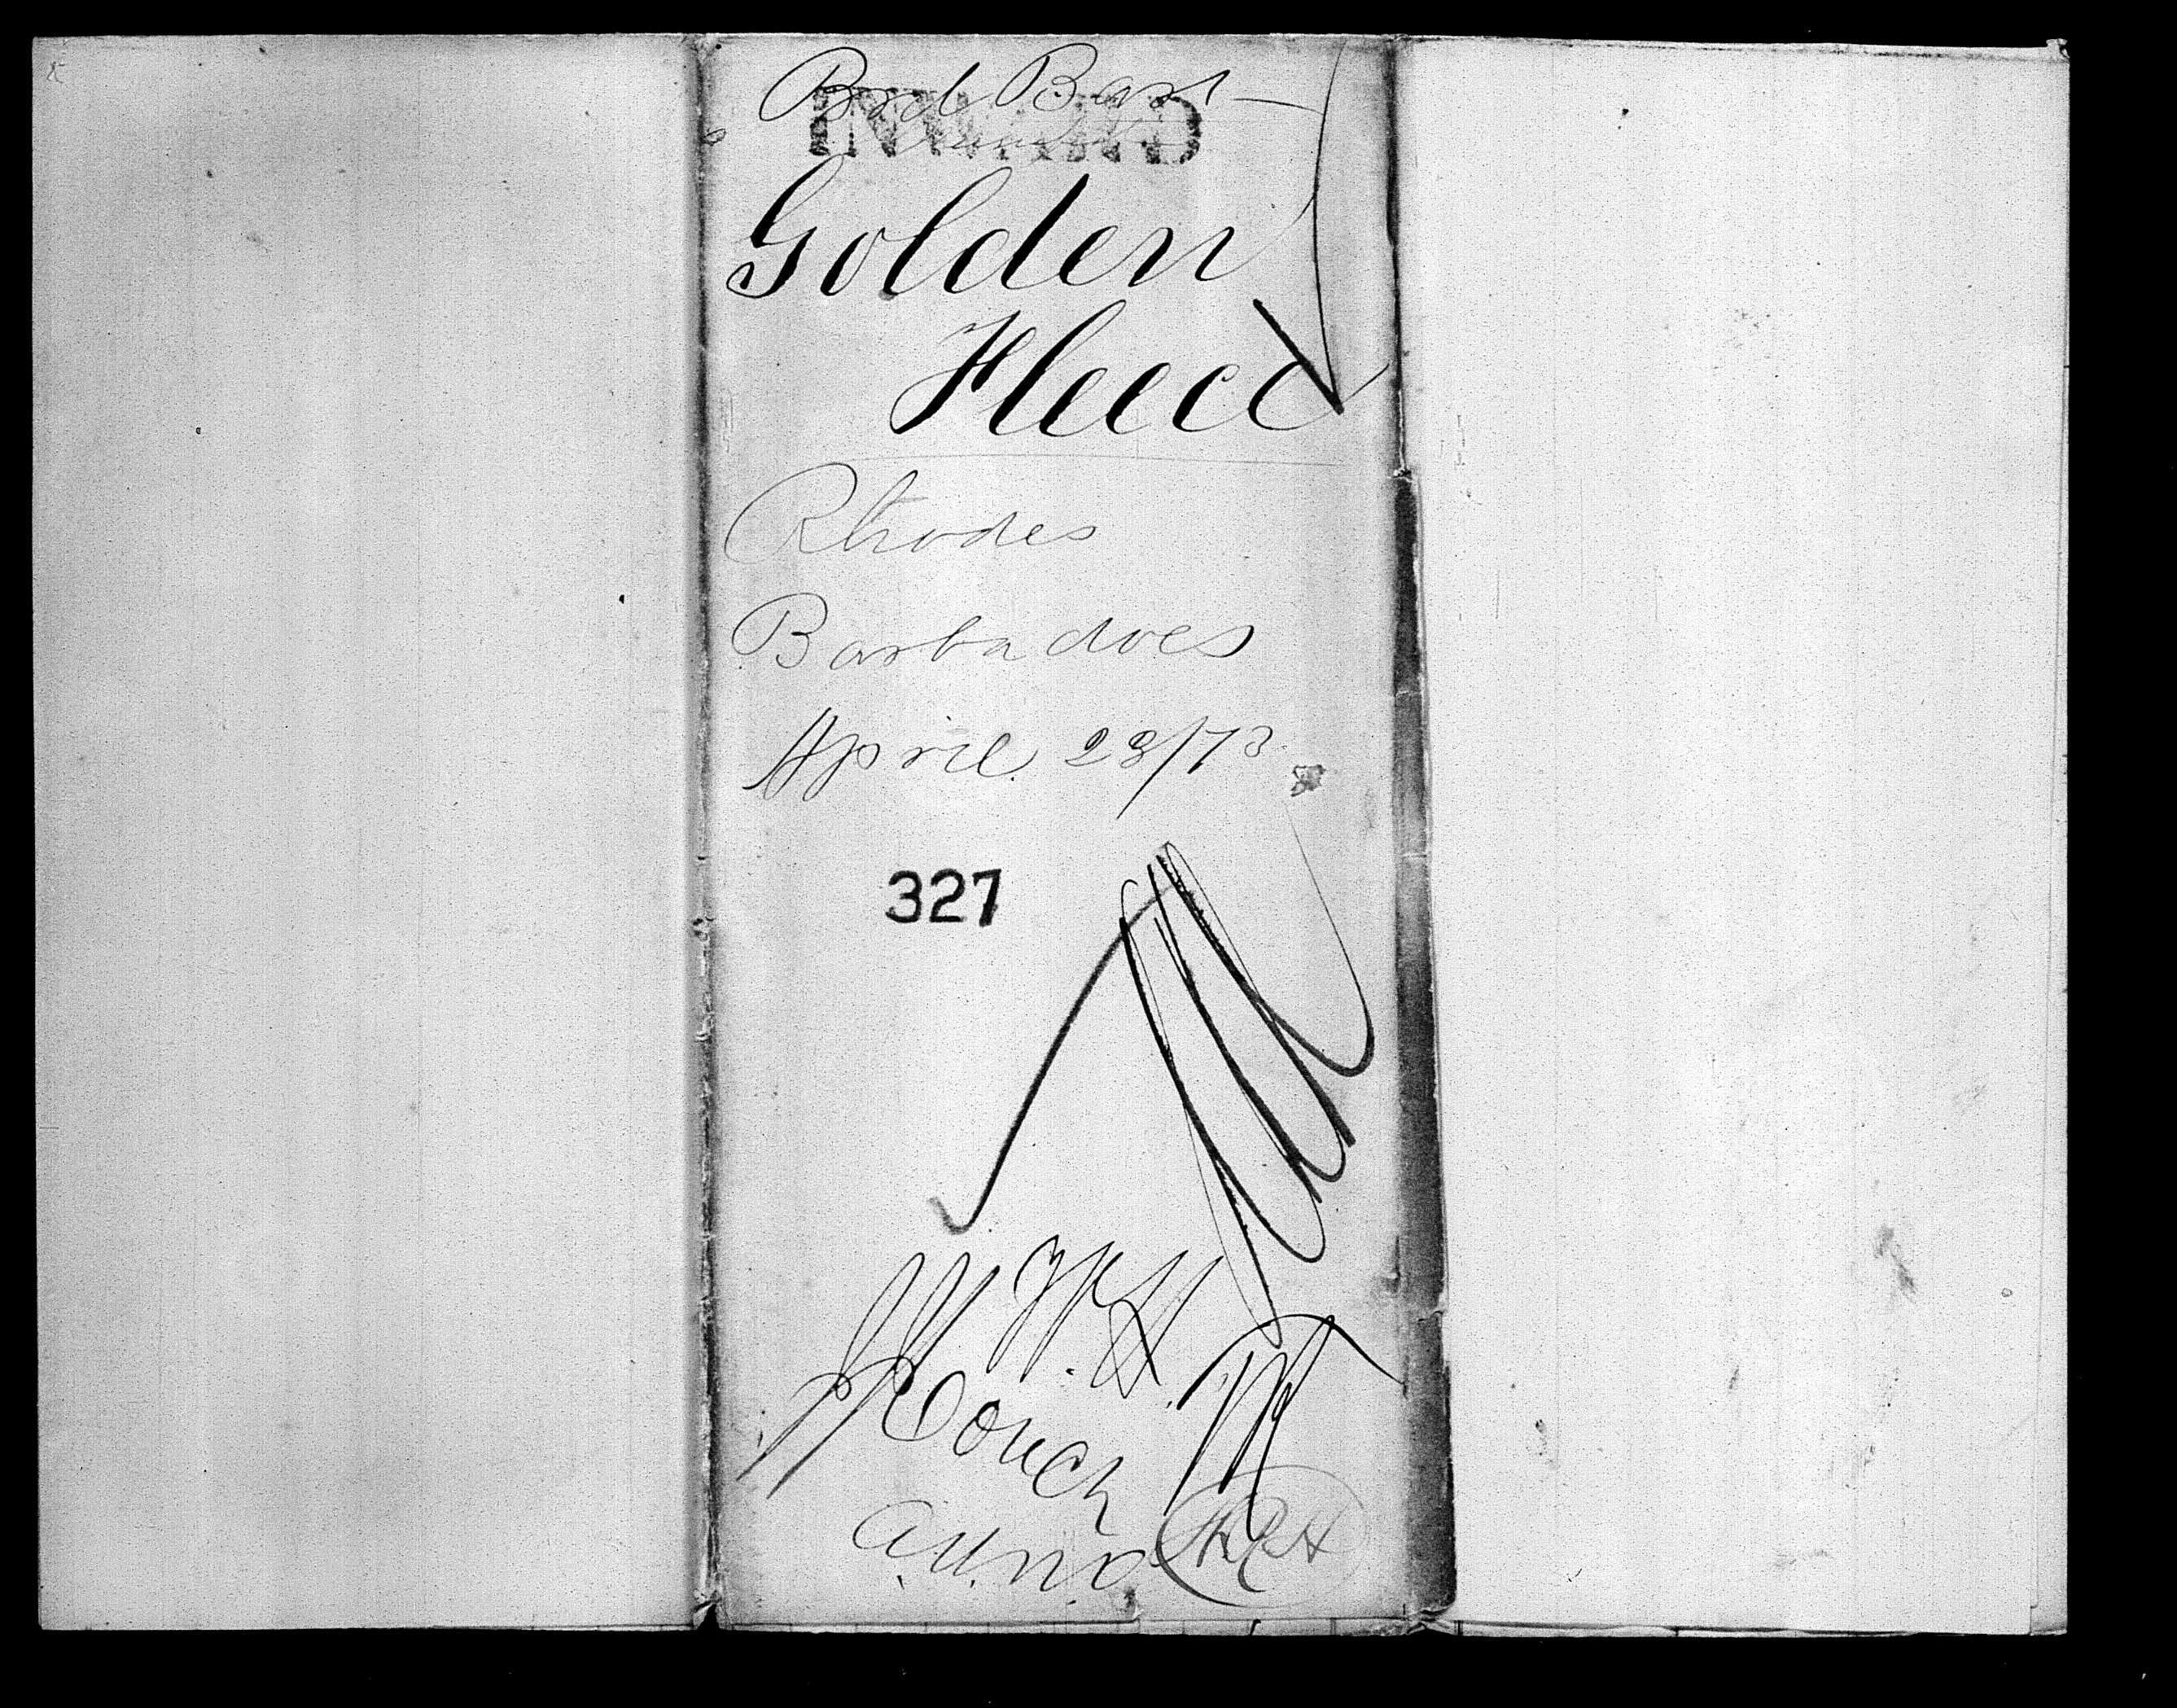 Brd Bark
INWARD
Golden
Fleece
Rhodes
Barbadoes
April 23/73
327
Couch